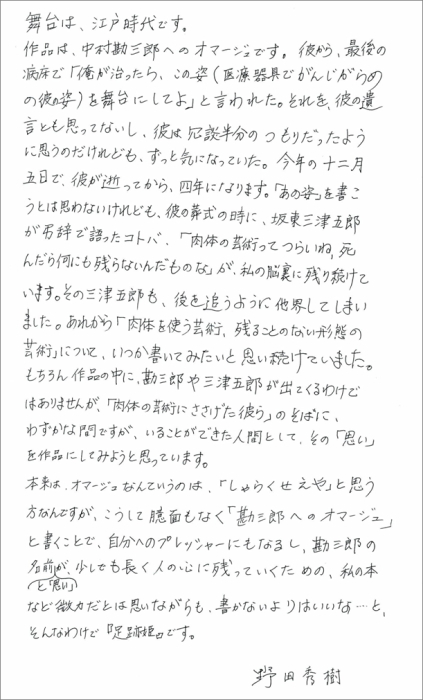 舞台は、江戸時代です。
作品は、中村勘三郎へのオマージュです。彼から、最後の
病床で「俺が治ったら、この姿(医療器具でがんじがらめ
の彼の姿)を舞台にしてよ」と言われた。それを、彼の遺
言とも思ってないし、彼は冗談半分のつもりだったよう
に思うのだけれども、ずっと気になっていた。今年の十二月
五日で、彼が逝ってから、四年になります。「あの姿」を書こ
うとは思わないけれども、彼の葬式の時に、坂東三津五郎
が弔辞で語ったコトバ、「肉体の芸術ってつらいね、死
んだら何にも残らないんだものな」が、私の脳裏に残り続けて
います。その三津五郎も、後を追うように他界してしまい
ました。あれから「肉体を使う芸術、残ることのない形態の
芸術」について、いつか書いてみたいと思い続けていました。
もちろん作品の中に、勘三郎や三津五郎が出てくるわけで
はありませんが、「肉体の芸術にささげた彼ら」のそばに、
わずかな間ですが、いることができた人間として、その「思い」
を作品にしてみようと思っています。
本来は、オマージュなんていうのは、「しゃらくせえや」と思う
方なんですが、こうして臆面もなく「勘三郎へのオマージュ」
と書くことで、自分へのプレッシャーにもなるし、勘三郎の
名前が、少しでも長く人の心に残っていくための、私の本
と「思い」
など微力だとは思いながらも、書かないよりはいいな…と、
そんなわけで『足跡姫』です。
野田秀樹